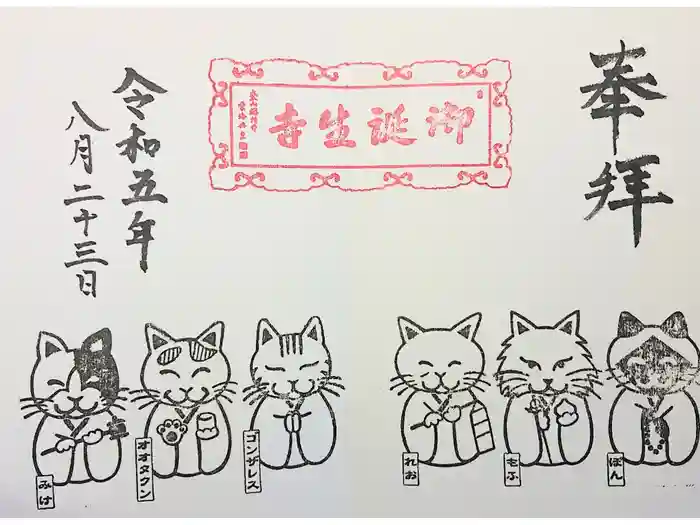 奉拝
御誕生寺
令和五年
八月二十三日
みけ
オオタクン
ゴンザレス
れお
もふ
ぽん